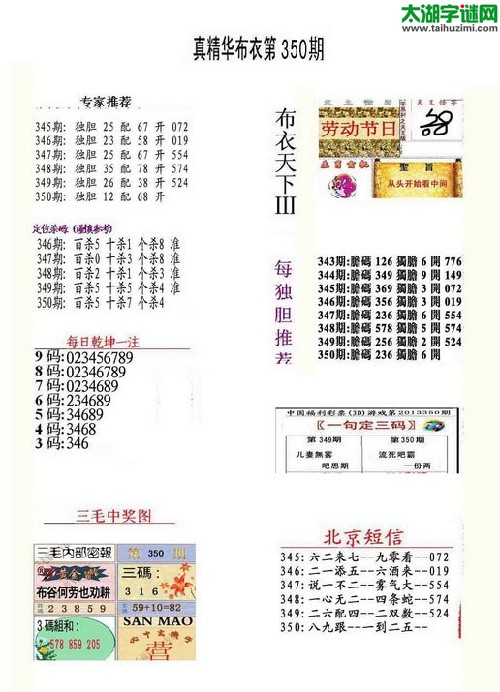 太湖字谜网
www.taihuzimi.com
真精华布衣第350期
专家推荐
345期: 独胆 25 配 67 开 072
346期: 独胆 23 配 58 开 019
347期: 独胆 25 配 67 开 554
348期: 独胆 35 配 78 开 574
349期: 独胆 26 配 38 开 524
350期: 独胆 12 配 68 开
定位杀码:(谨慎参考)
346期: 百杀5 十杀1 个杀8 准
347期: 百杀0 十杀3 个杀8 准
348期: 百杀2 十杀1 个杀1 准
349期: 百杀5 十杀5 个杀5 准
350期: 百杀5 十杀7 个杀4
每日乾坤一注
9码:023456789
8码:02346789
7码:0234689
6码:234689
5码:34689
4码:3468
3码:346
三毛中奖图
三毛內部密報
第 350 期
布谷何劳也劝耕
2 3 8 5 9
3碼組和:
578 859 205
三碼:
3 1 6
59+10=82
SAN MAO
营
布衣天下III
劳动节日
聖旨
从头开始看中间
每独胆推荐
343期:膽碼 126 獨膽 6 開 776
344期:膽碼 349 獨膽 9 開 149
345期:膽碼 369 獨膽 3 開 072
346期:膽碼 356 獨膽 3 開 019
347期:膽碼 236 獨膽 6 開 554
348期:膽碼 578 獨膽 5 開 574
349期:膽碼 256 獨膽 2 開 524
350期:膽碼 236 獨膽 6 開
中国福利彩票(3D)游戏第2013350期
〖一句定三码〗
第349期
儿妻無雾
吧思期
第350期
流死吧霸
一份两
北京短信
345: 六二来七--九零看--072
346: 二一添五--六酒来--019
347: 说一不二--雾气大--554
348: 一心无二--四条蛇--574
349: 二六配四--二双数--524
350: 八九跟--一到二五--